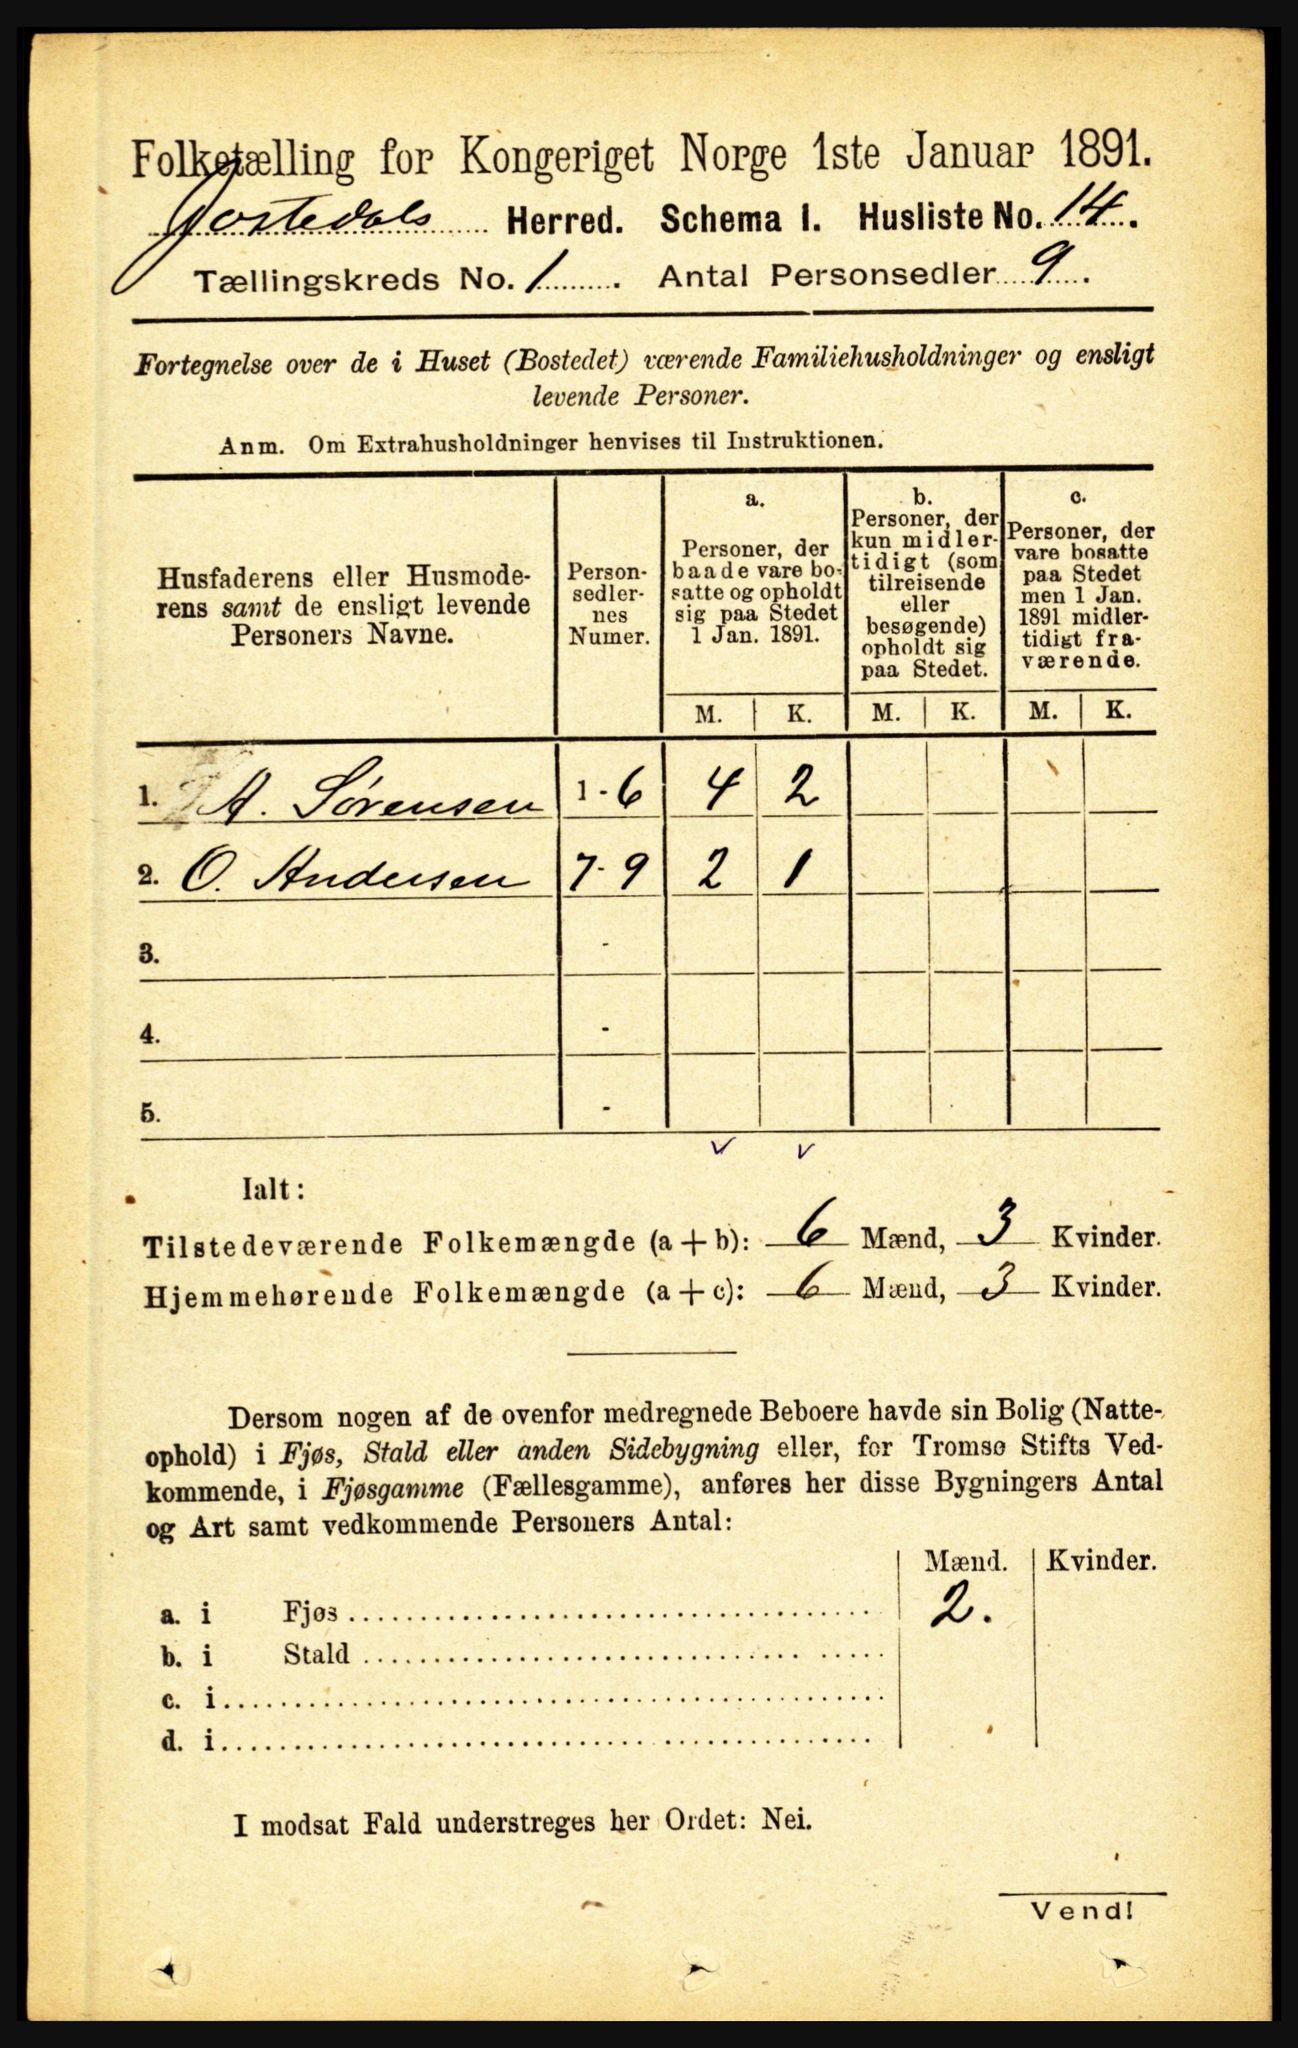 Folketælling for Kongeriget Norge 1ste Januar 1891.
Jostedals Herred. Schema 1. Husliste No. 14.
Tællingskreds No. 1. Antal Personsedler 9.
Fortegnelse over de i Huset (Bostedet) værende Familiehusholdninger og ensligt
levende Personer.
Anm. Om Extrahusholdninger henvises til Instruktionen.
Husfaderens eller Husmode-
rens samt de ensligt levende
Personers Navne.
Person-
sedler-
nes
Numer.
a.
Personer, der
baade vare bo-
satte og opholdt
sig paa Stedet
1 Jan. 1891.
b.
Personer, der
kun midler-
tidigt (som
tilreisende
eller
besøgende)
opholdt sig
paa Stedet.
c.
Personer, der
vare bosatte
paa Stedet
men 1 Jan.
1891 midler-
tidigt fra-
værende.
M. K. M. K. M. K.
1. A. Sørensen 1-6 4 2
2. O. Andersen 7-9 2 1
3. -
4. -
5. -
Ialt:
Tilstedeværende Folkemængde (a + b): 6 Mænd, 3 Kvinder.
Hjemmehørende Folkemængde (a + c): 6 Mænd, 3 Kvinder.
Dersom nogen af de ovenfor medregnede Beboere havde sin Bolig (Natte-
ophold) i Fjøs, Stald eller anden Sidebygning eller, for Tromsø Stifts Ved-
kommende, i Fjøsgamme (Fællesgamme), anføres her disse Bygningers Antal
og Art samt vedkommende Personers Antal:
Mænd. Kvinder.
a. i Fjøs 2.
b. i Stald
c. i
d. i
I modsat Fald understreges her Ordet: Nei.
Vend!